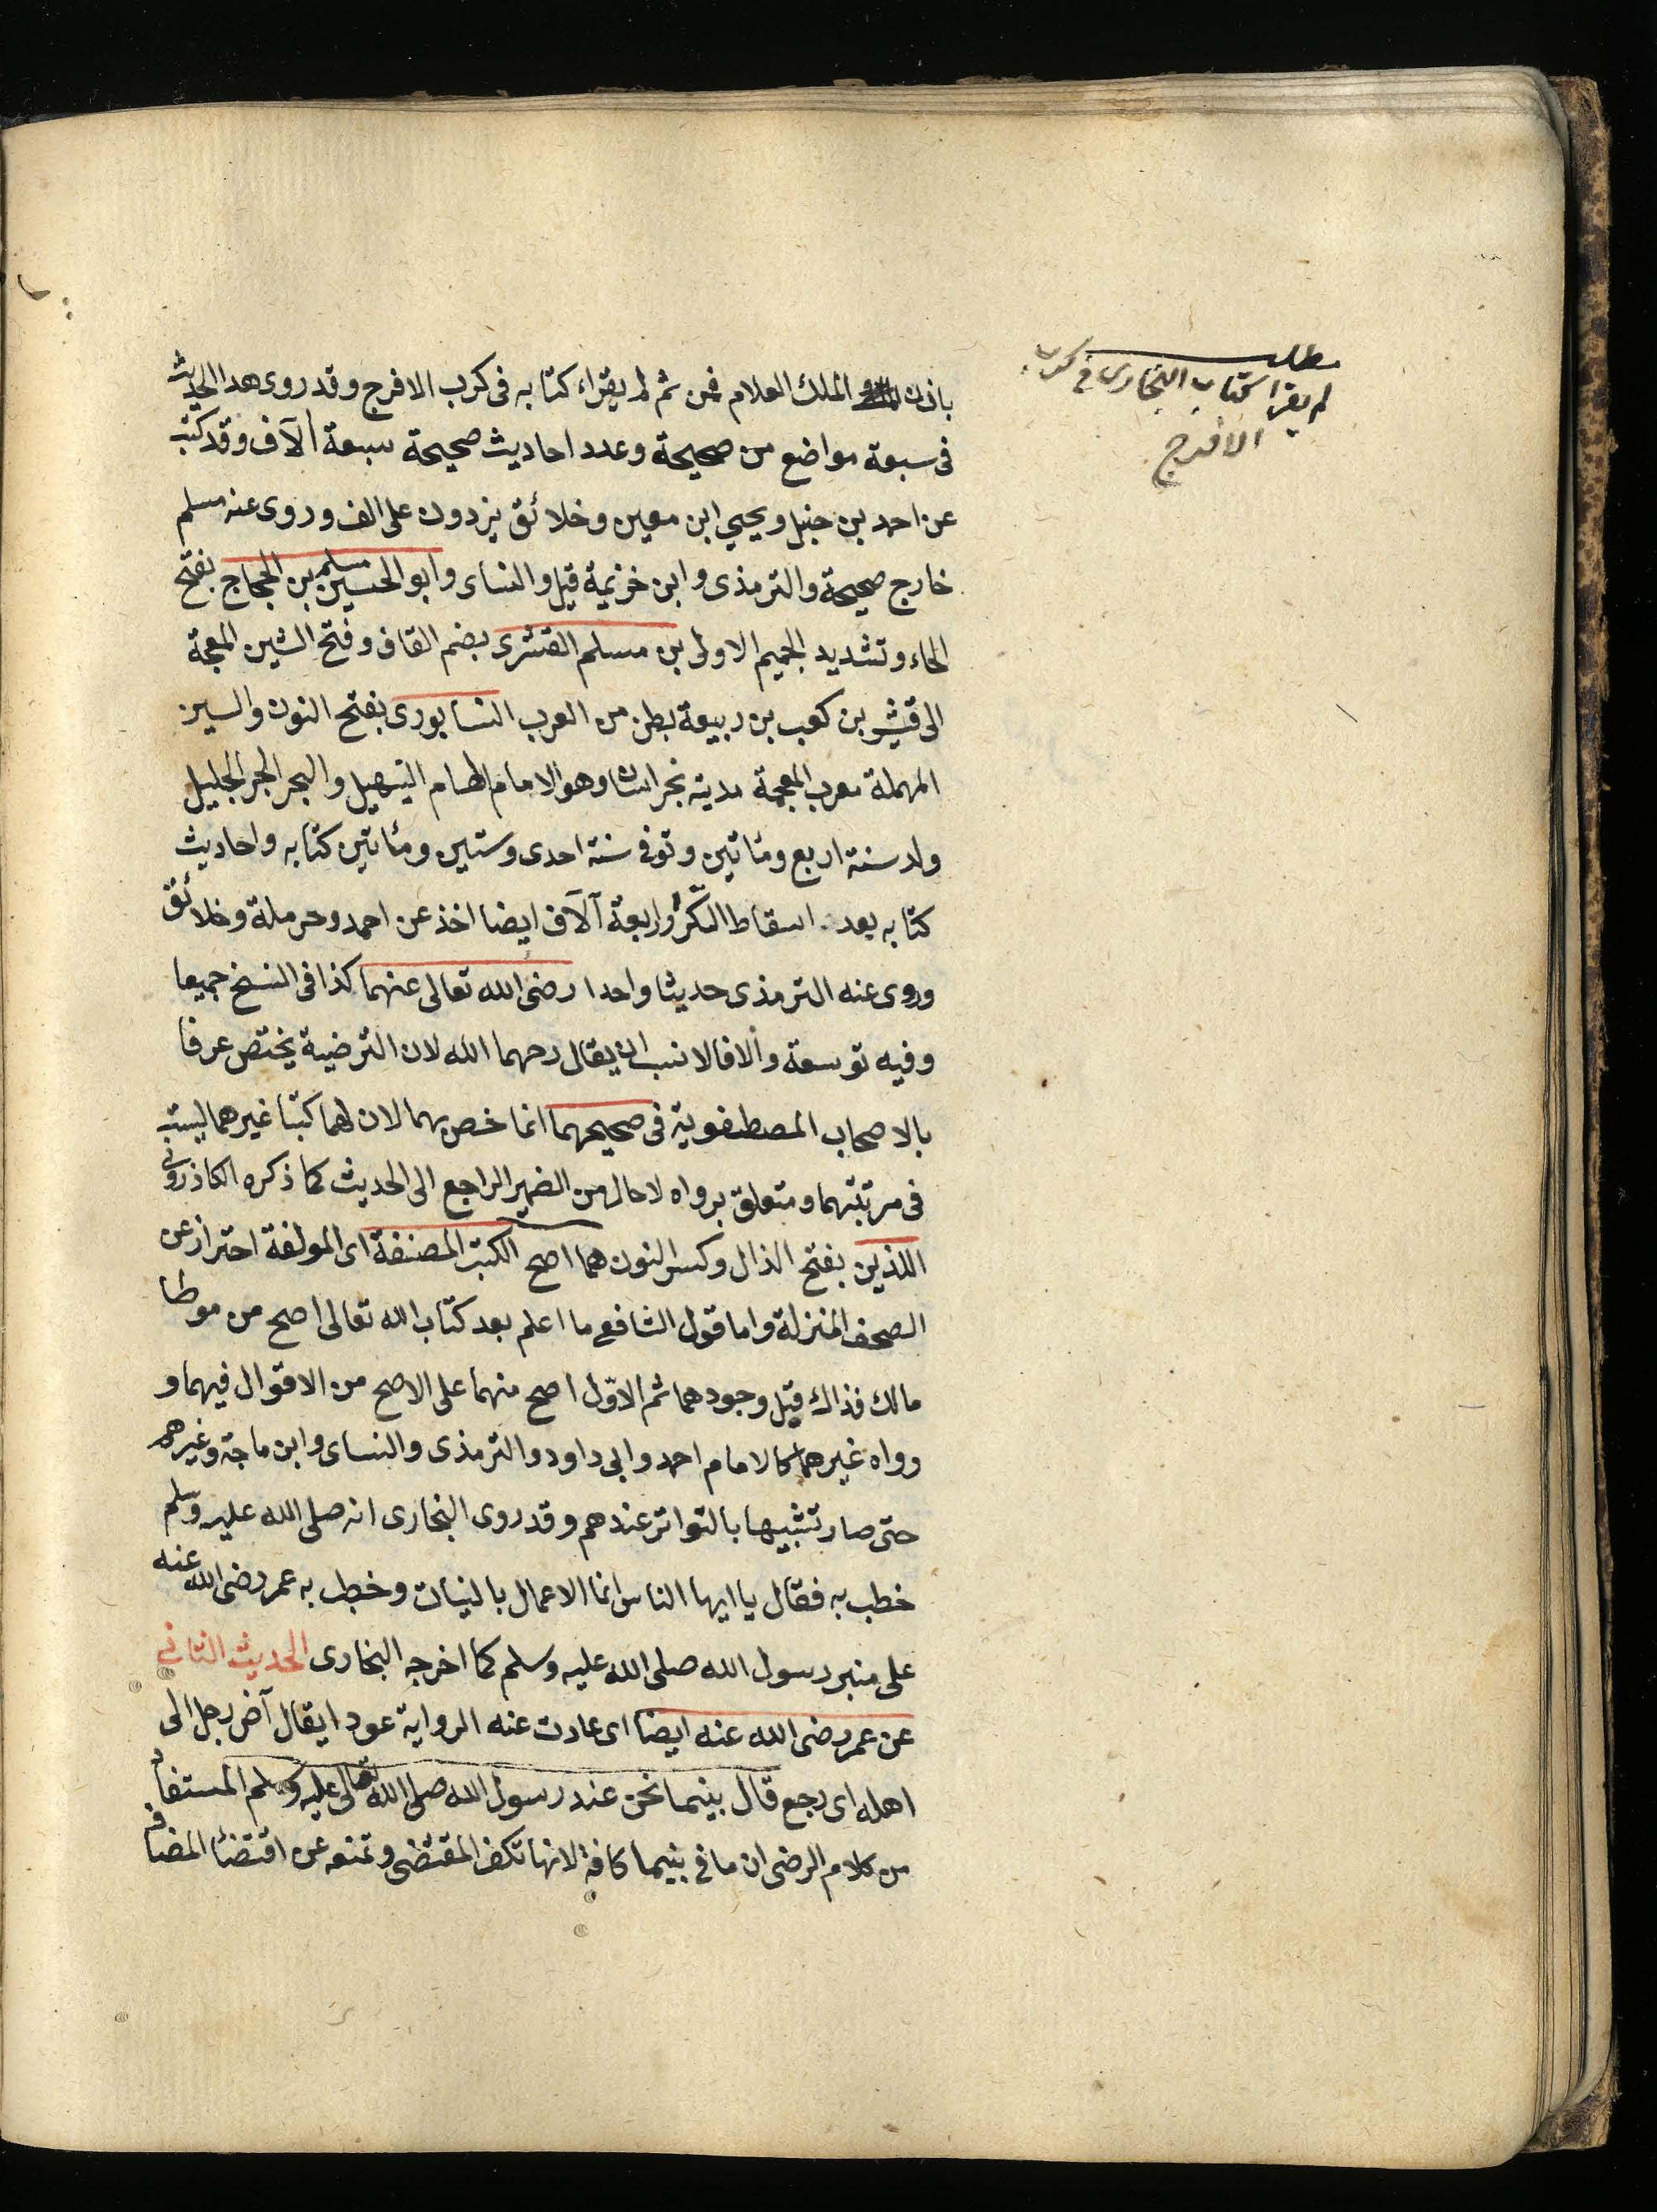 مطلب
لم يقرا كتاب البخارى فى كرب
الا فرج
باذن الملك العلام فمن ثم لم يقراء كتابه فى كرب الا فرج وقد روى هذا الحديث
فى سبعة مواضع من صحيحة وعدد احاديث صحيحة سبعة الآف وقد كتب
عن احمد بن حنبل ويحيى ابن معين وخلائق يزدون على الف وروى عنه مسلم
خارج صحيحة والترمذى وابن خزيمة قيل والنساى وابو الحسين مسلم بن الحجاج بفتح
الحاء وتشديد الجيم الاولى بن مسلم القشرى بضم القاف وفتح الشين المعجمة
الى قشير بن كعب بن ربيعة بطن من العرب النسابورى بفتح النون والسين
المهملة معرب المعجمة مدينه بخراسان وهو الامام الهمام النبيل والبحر الحبر الجليل
ولد سنة اربع ومئاتين وتوفى سنة احدى وستين ومئاتين كتابه واحاديث
كتابه بعد اسقاط المكرر اربعة آلآف ايضا اخذ عن احمد وحرملة وخلائق
وروى عنه الترمذى حديثا واحدا رضى الله تعالى عنهما كذا فى النسخ جميعا
وفيه توسعة والا فالانسب ان يقال رحهما الله لان الترضية يختص عرفا
بالاصحاب المصطفوية فى صحيحهما انما خص بهما لان لهما كتبا غيرهما ليست
فى مرتبتهما ومتعلق برواه لا حال من الضمير الراجع الى الحديث كما ذكره الكاذرونى
اللذين بفتح الذال وكسر النون هما اصح الكتب المصنفة اى المولفة احتراز عن
الصحف المنزلة واما قول الشافعى ما اعلم بعد كتاب الله تعالى اصح من موطا
مالك فذاك قبل وجودهما ثم الاوّل اصح منهما على الاصح من الاقوال فيهما و
رواه غيرهما كالامام احمد وابى داود والترمذى والنساى وابن ماجة وغيرهم
حتى صار تشبيها بالتواتر عندهم وقد روى البخارى انه صلى الله عليه وسلم
خطب به فقال يا ايها الناس انما الاعمال بالنيات وخطب به عمر رضى الله عنه
على منبر رسول الله صلى الله عليه وسلم كما اخرجه البخارى الحديث الثانى
عن عمر رضى الله عنه ايضا اى عادت عنه الرواية عودا يقال آض رجل الى
اهله اى رجع قال بينما نحن عند رسول الله صلى الله تعالى عليه وسلم المستفاد
من كلام الرضى ان ما فى بينما كافة لانها تكف المقتضى وتمنعه عن اقتضا المضاف